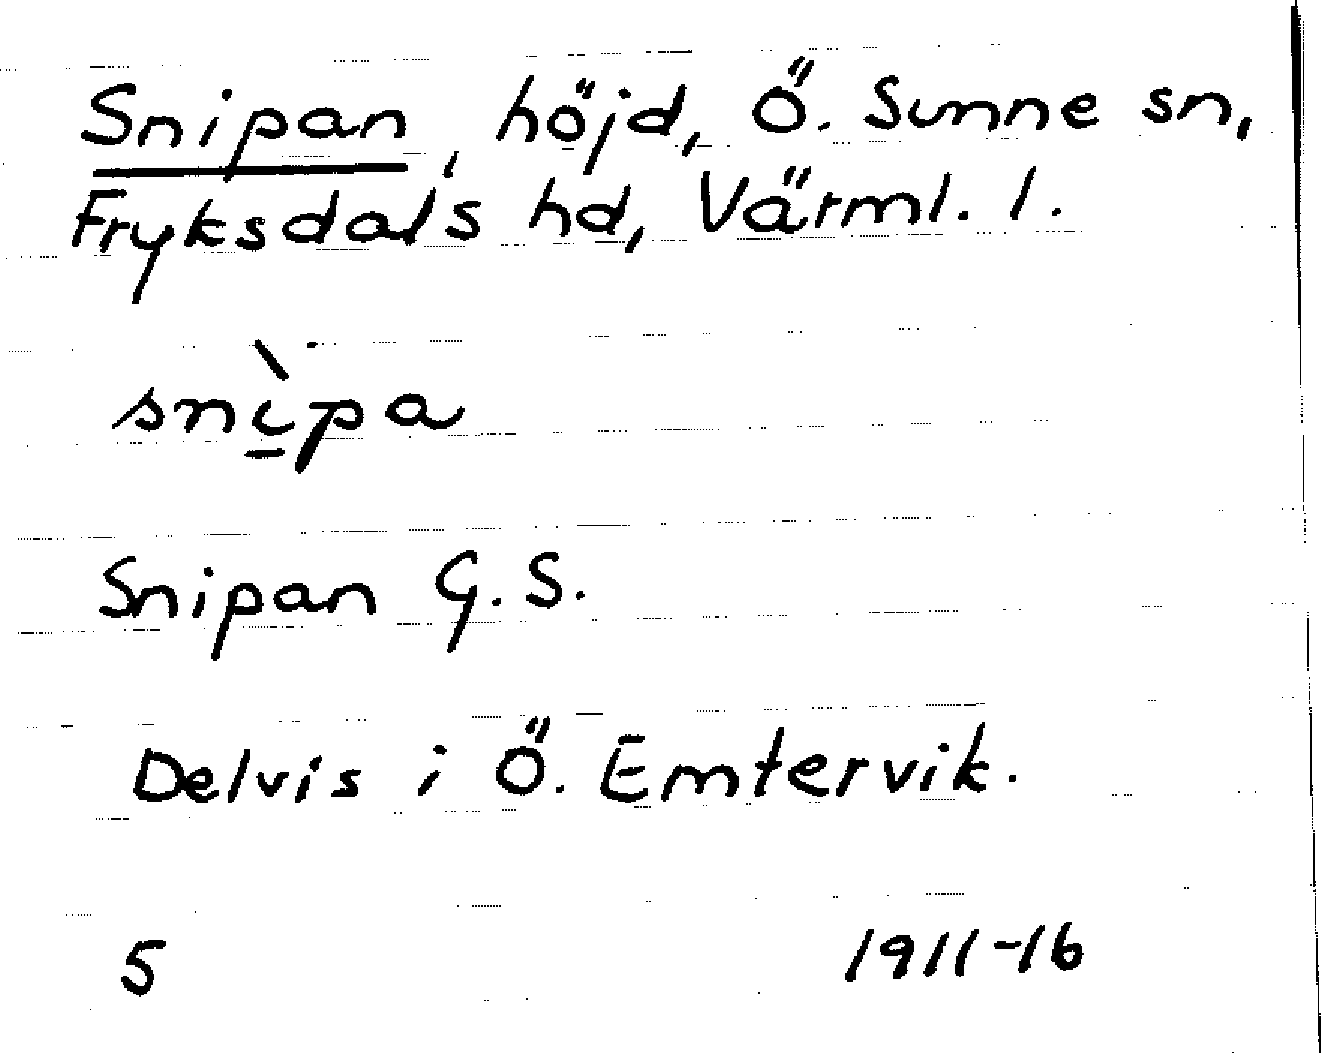 Snipan, höjd, Ö. Sunne sn,
Fryksdals hd, Värml. l.
snìpa
Snipan G.S.
Delvis i Ö. Emtervik.
5 1911-16